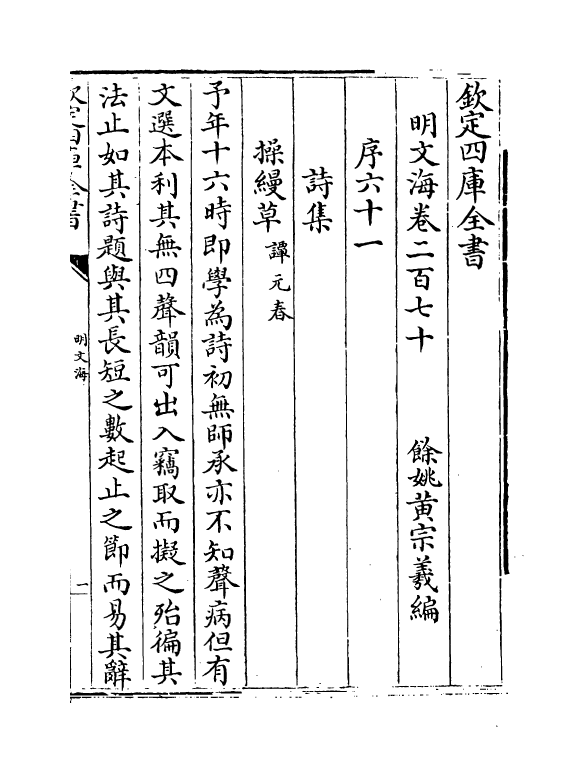 欽定四庫全書
明文海卷二百七十　餘姚黃宗羲編
序六十一
詩集
操縵草 譚元春
予年十六時即學為詩初無師承亦不知聲病但有
文選本利其無四聲韻可出入竊取而擬之殆徧其
法止如其詩題與其長短之數起止之節而易其辭
欽定四庫全書
明文海
一